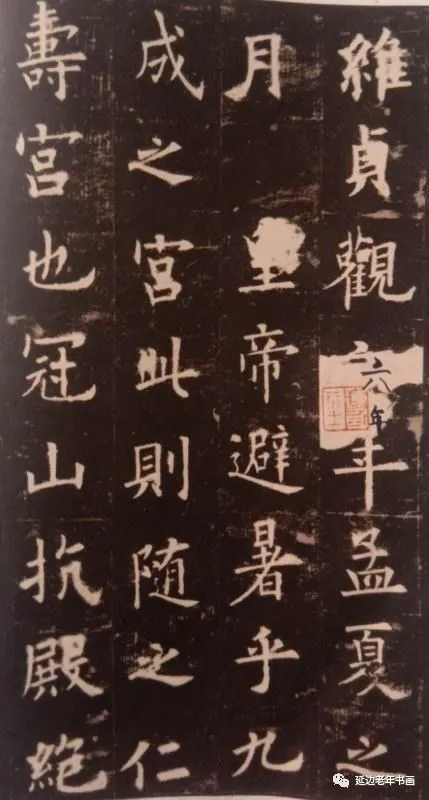 維貞觀六年孟夏之
六年
月 皇帝避暑乎九
成之宮此則随之仁
壽宮也冠山抗殿絶
延边老年书画